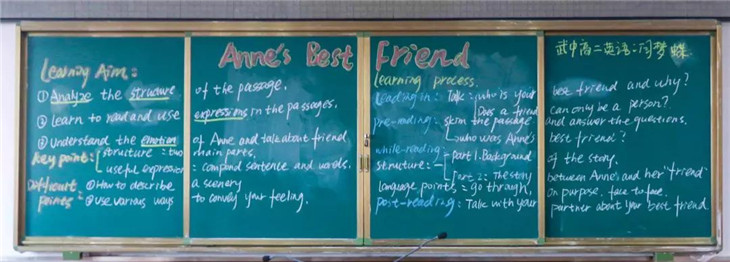 Anne's Best Friend
武中高二英语:闫梦蝶
Learning Aim:
① Analyze the structure of the passage.
② Learn to read and use expressions in the passages.
③ Understand the emotion of Anne and talk about friend.
key point: { structure = two main parts.
useful expression = compound sentence and words.
Difficult points: ① How to describe a scenery
② use various ways to convey your feeling.
learning process.
leading in: Talk: who is your best friend and why?
Does a friend can only be a person?
pre-reading: skim the passage and answer the questions.
who was Anne's best friend?
while-reading: part 1. Background of the story.
structure: Part 2: The story between Anne's and her "friend"
language points: go through, on purpose, face to face.
post-reading: Talk with your partner about your best friend.